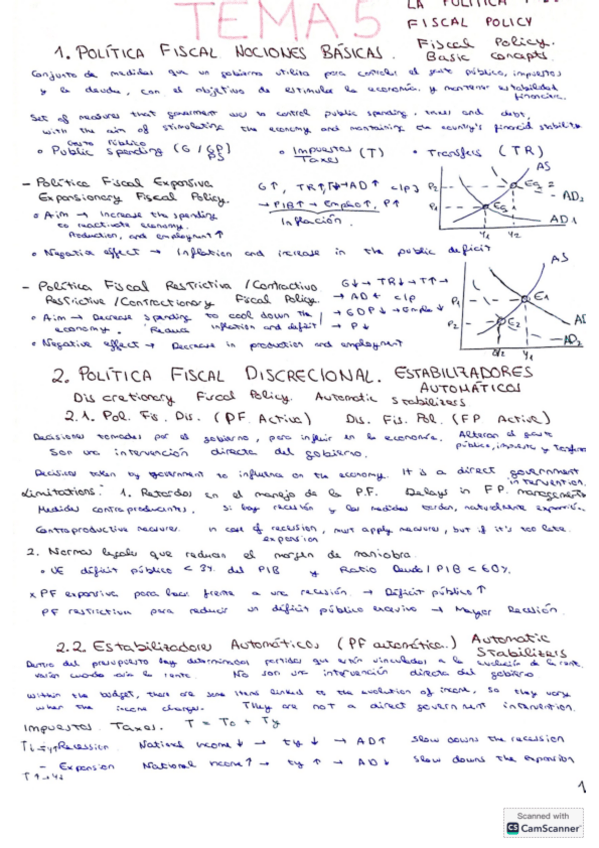 LA POLÍTICA F
TEMA 5
FISCAL POLICY
1. POLÍTICA FISCAL. NOCIONES BÁSICAS. Fiscal Policy.
Basic concepts.
Conjunto de medidas que un gobierno utiliza para controlar el gasto público, impuestos
y la deuda, con el objetivo de estimular la economía, y mantener estabilidad
financiera.
Set of measures that government use to control public spending, taxes and debt,
with the aim of stimulating the economy and mantaining the country's financial stability
Gasto Público
• Public Spending (G / GP) • Impuestos (T) • Transfers (TR)
PS Taxes
- Política Fiscal Expansiva G↑, TR↑, T↓ → AD↑ c/p
Expansionary Fiscal Policy. → PIB↑ → Empleo↑, P↑
• Aim → Increase the spending Inflación
to reactivate economy.
Production, and employment↑
AS
P2 E2 AD2
P1 E1 AD1
Y1 Y2
• Negative effect → Inflation and increase in the public deficit
- Política Fiscal Restrictiva / Contractiva G↓ → TR↓ → T↑ →
Restrictive / Contractionary Fiscal Policy. → AD↓ c/p
• Aim → Decrease spending to cool down the → GDP↓ → Empleo↓
economy. Reduce inflation and deficit → P↓
• Negative effect → Decrease in production and employment
AS
P1 E1
P2 E2
AD2
Y2 Y1
2. POLÍTICA FISCAL DISCRECIONAL. ESTABILIZADORES
AUTOMÁTICOS
Discretionary Fiscal Policy. Automatic stabilizers
2.1. Pol. Fis. Dis. (PF. Activa) Dis. Fis. Pol. (FP Active)
Decisiones tomadas por el gobierno, para influir en la economía. Alteran el gasto
público, impuesto y Transfers
Son una intervención directa del gobierno.
Decisions taken by government to influence on the economy. It is a direct government
intervention.
Limitations: 1. Retardos en el manejo de la P.F. Delays in F.P. management
Medidas contraproducentes. Si hay recesión y las medidas tardan, naturalmente expansión.
Contraproductive measures. in case of recession, must apply measures, but if it's too late.
expansion
2. Normas legales que reducen el margen de maniobra.
• UE déficit público < 3% del PIB y Ratio Deuda / PIB < 60%
x PF expansiva para hacer frente a una recesión. → Déficit público↑
PF restrictiva para reducir un déficit público excesivo → Mayor Recesión.
2.2. Estabilizadores Automáticos (PF automática.) Automatic
Stabilizers
Dentro del presupuesto hay determinadas partidas que están vinculadas a la evolución de la renta.
varían cuando varía la renta. No son una intervención directa del gobierno
Within the budget, there are some items linked to the evolution of income, so they vary
when the income changes. They are not a direct government intervention.
Impuestos. Taxes. T = To + Ty
Recession National income↓ → ty↓ → AD↑ slow downs the recession
- Expansion National income↑ → ty↑ → AD↓ slow downs the expansion
1
Scanned with
CS CamScanner